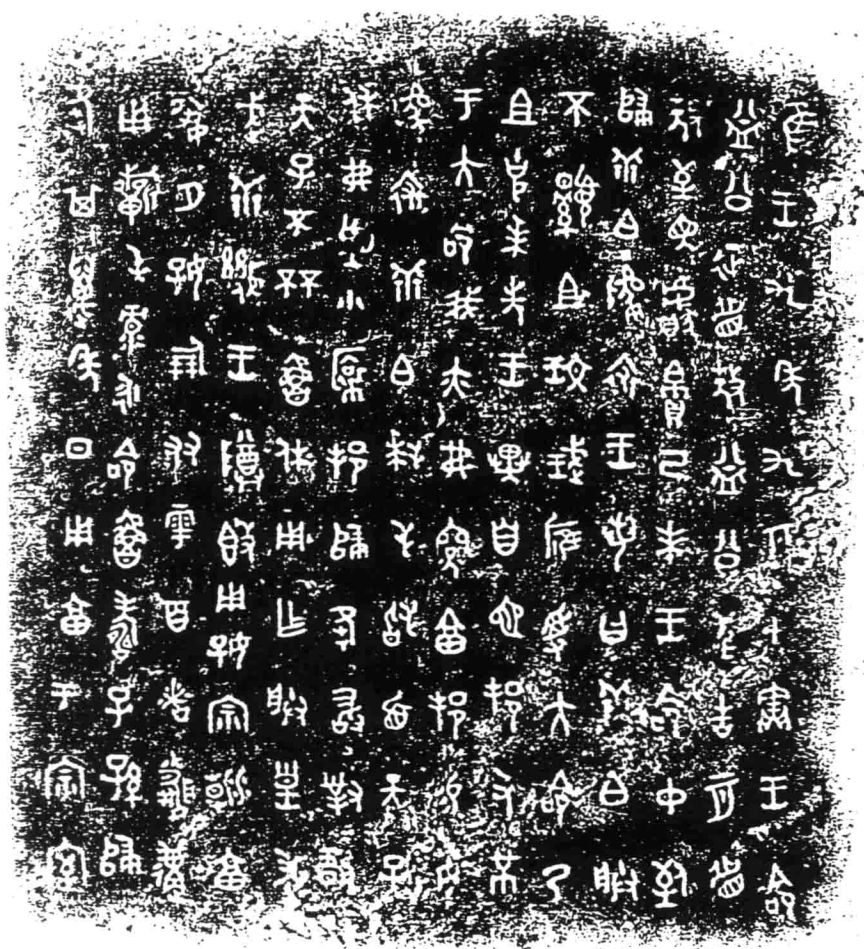 隹王九年九月甲寅王命
益公征眉敖益公至告二月眉
敖至見獻帛己未王命中致
歸乖白貔裘王若曰乖白朕
不顯且玟珷膺受大命乃
且克奉先王異自它邦又芇
于大命我亦弗享邦易女貔
裘乖白拜手𩒨首天子
休弗望小裔邦歸夆敢對揚
天子不㔻魯休用乍朕皇考
武乖幾王尊𣪘用好宗廟享
夙夕好倗友雩百者婚遘
用祈屯彔永命魯壽子孫歸
夆其萬年日用享于宗室